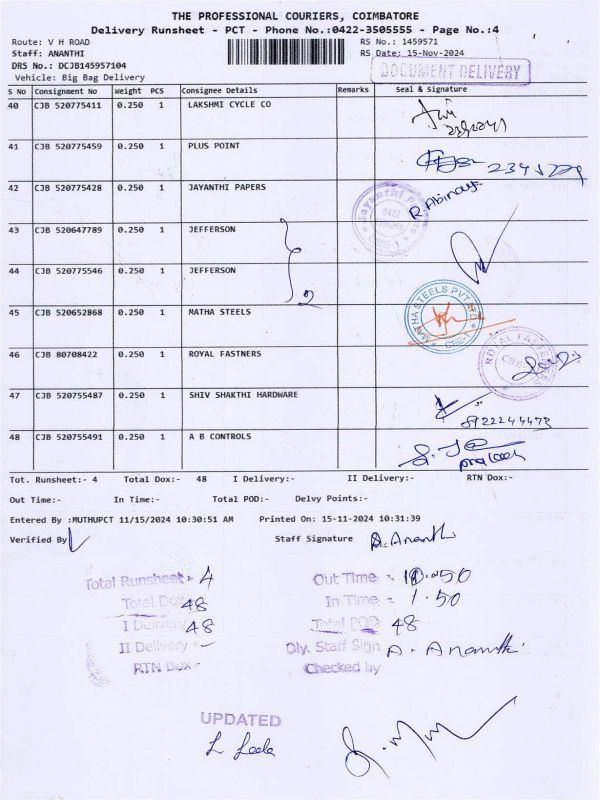 THE PROFESSIONAL COURIERS, COIMBATORE
Delivery Runsheet - PCT - Phone No.:0422-3505555 - Page No.:4
Route: V H ROAD
RS No.: 1459571
Staff: ANANTHI
RS Date: 15-Nov-2024
DRS No.: DCJB145957104
Vehicle: Big Bag Delivery
DOCUMENT DELIVERY
S No Consignment No Weight PCS Consignee Details Remarks Seal & Signature
40 CJB 520775411 0.250 1 LAKSHMI CYCLE CO
41 CJB 520775459 0.250 1 PLUS POINT
42 CJB 520775428 0.250 1 JAYANTHI PAPERS R. Abinaya
43 CJB 520647789 0.250 1 JEFFERSON
44 CJB 520775546 0.250 1 JEFFERSON 2
45 CJB 520652868 0.250 1 MATHA STEELS MATHA STEELS PVT LTD CBE-1
46 CJB 80708422 0.250 1 ROYAL FASTNERS ROYAL FASTENERS
47 CJB 520755487 0.250 1 SHIV SHAKTHI HARDWARE
48 CJB 520755491 0.250 1 A B CONTROLS
Tot. Runsheet:- 4 Total Dox:- 48 I Delivery:- II Delivery:- RTN Dox:-
Out Time:- In Time:- Total POD:- Delvy Points:-
Entered By :MUTHUPCT 11/15/2024 10:30:51 AM Printed On: 15-11-2024 10:31:39
Verified By Staff Signature A. Ananthi
Total Runsheet - 4 Out Time -
Total Dox 48 In Time - 1.50
I Delivery 48 Total POD 48
II Delivery - Dly. Staff Sign A. Ananthi
RTN Dox - Checked by
UPDATED